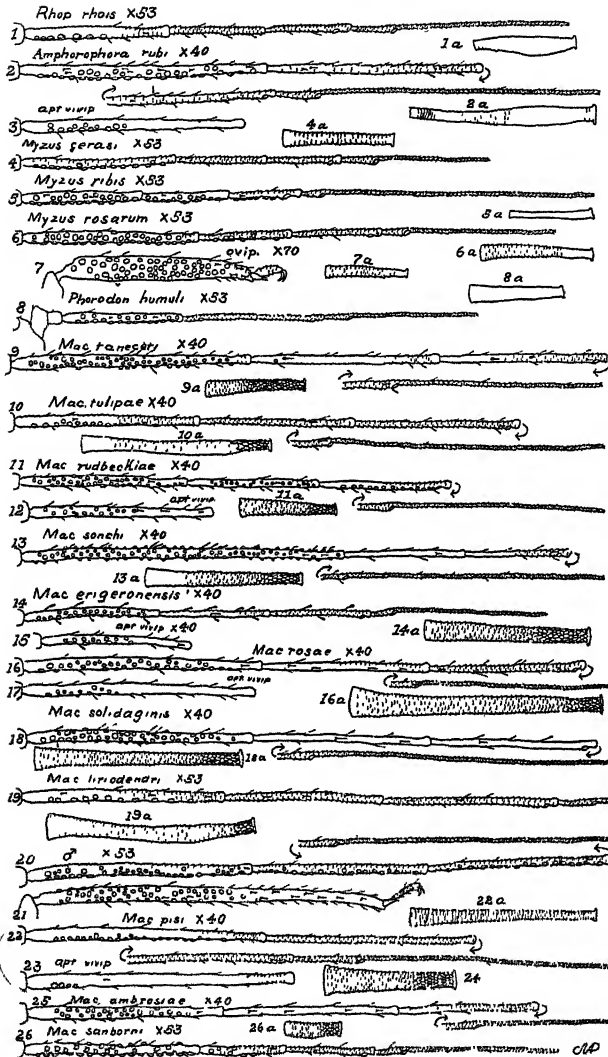 Rhop rhois X53
1
1a
Amphorophora rubi X40
2
2a
apt vivip
3
4a
Myzus cerasi X53
4
Myzus ribis X53
5
5a
Myzus rosarum X53
6
6a
ovip. X70
7
7a
8a
Phorodon humuli X53
8
Mac. X40
9
9a
Mac. tulipae X40
10
10a
Mac rudbeckiae X40
11
apt vivip
12
11a
Mac sonchi X40
13
13a
Mac erigeronensis X40
14
14a
apt vivip X40
15
Mac rosae X40
16
apt vivip
17
16a
Mac solidaginis X40
18
18a
Mac liriodendri X53
19
19a
♂ X53
20
21
22a
Mac pisi X40
22
apt vivip
23
24
25 Mac ambrosiae X40
Mac sanborni X53
26
26a